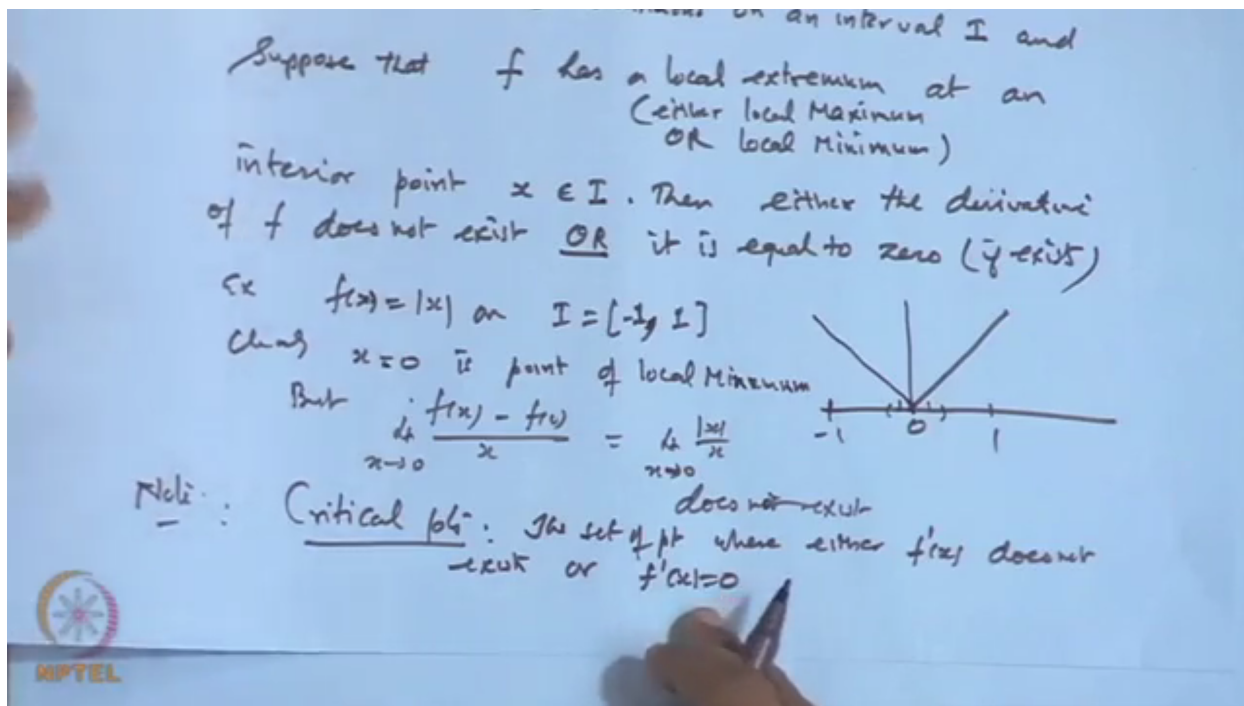 on an interval I and
Suppose that f has a local extremum at an
(either local Maximum
OR local Minimum)
interior point x ∈ I. Then either the derivative
of f does not exist OR it is equal to zero (if exist)
Ex f(x) = |x| on I = [-1, 1]
x = 0 is point of local Minimum
But lt x→0 f(x) - f(0) / x = lt x→0 |x| / x
does not exist
-1 0 1
Note: Critical pts: The set of pt where either f'(x) does not
exist or f'(x)=0
NPTEL